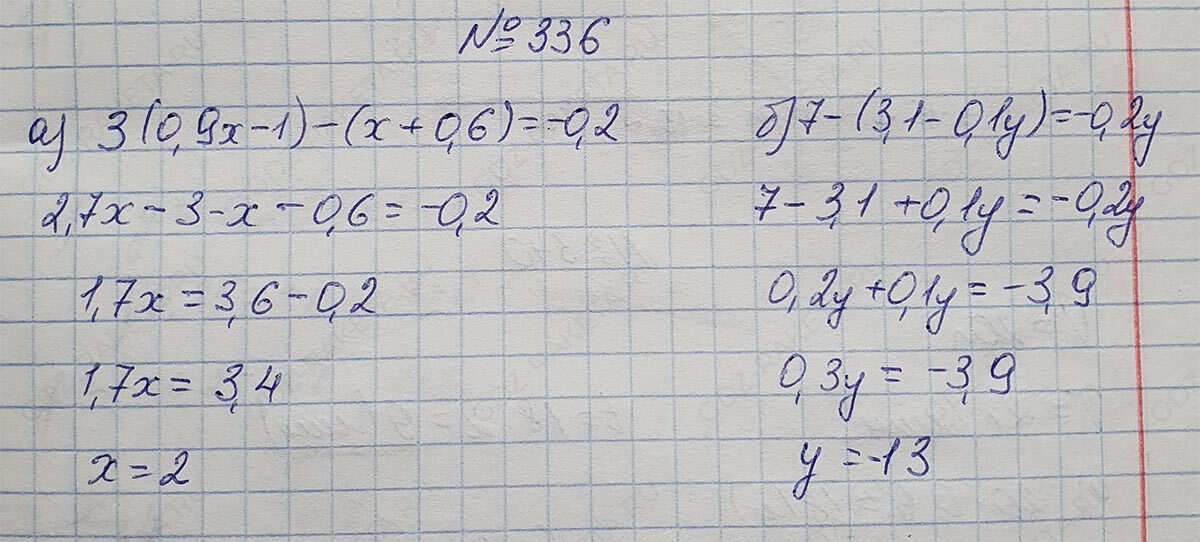 №336
а) 3(0,9x-1)-(x+0,6)=-0,2
2,7x-3-x-0,6=-0,2
1,7x=3,6-0,2
1,7x=3,4
x=2
б) 7-(3,1-0,1y)=-0,2y
7-3,1+0,1y=-0,2y
0,2y+0,1y=-3,9
0,3y=-3,9
y=-13